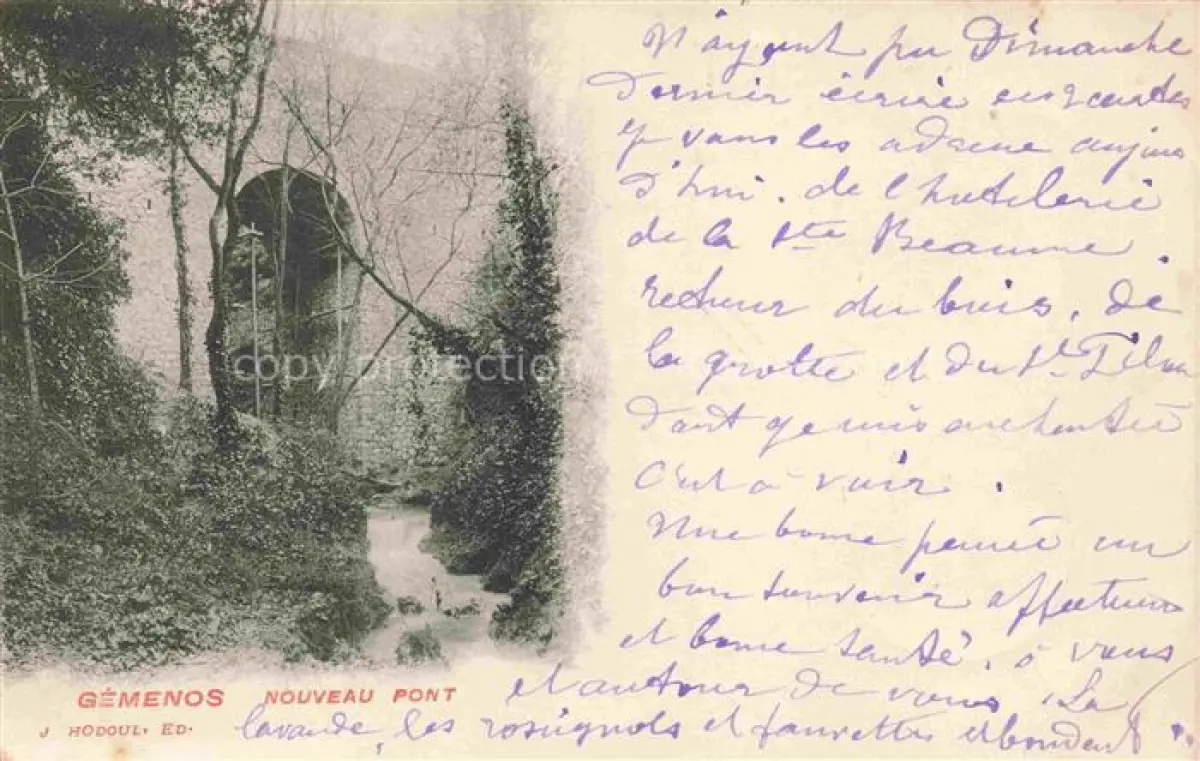 N'ayant pu Dimanche
Dernier écrire ces cartes
je vous les adresse aujour
d'hui. de l'hotelerie
de la Ste Beaume.
retour du bois, de
la grotte et du St Pilon
dont je suis enchantée
c'est à voir.
Une bonne pensée un
bon souvenir affectueux
et bonne santé, à vous
et autour de vous. La
lavande, les rosignols et fauvettes abondent
GÉMENOS NOUVEAU PONT
J HODOUL, ED.
copy protection